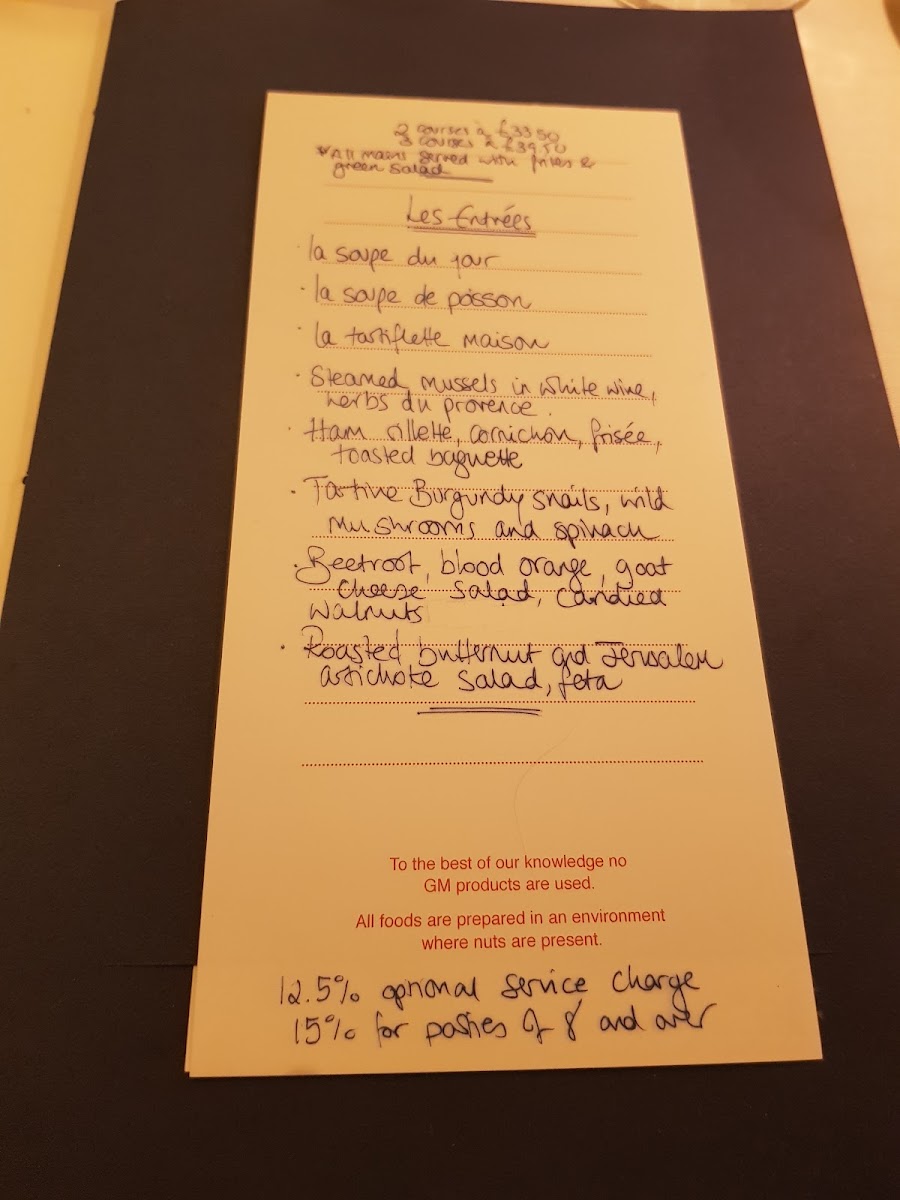 2 courses à £33.50
3 courses à £39.50
*All mains served with frites &
green salad
Les Entrées
· la soupe du jour
· la soupe de poisson
· la tartiflette maison
· Steamed mussels in white wine,
herbs du provence.
· Ham rillette, cornichon, frisée,
toasted baguette
· Tartine Burgundy snails, wild
mushrooms and spinach
· Beetroot, blood orange, goat
cheese salad, candied
walnuts
· Roasted butternut and Jerusalem
artichoke salad, feta
To the best of our knowledge no
GM products are used.
All foods are prepared in an environment
where nuts are present.
12.5% optional service charge
15% for parties of 8 and over